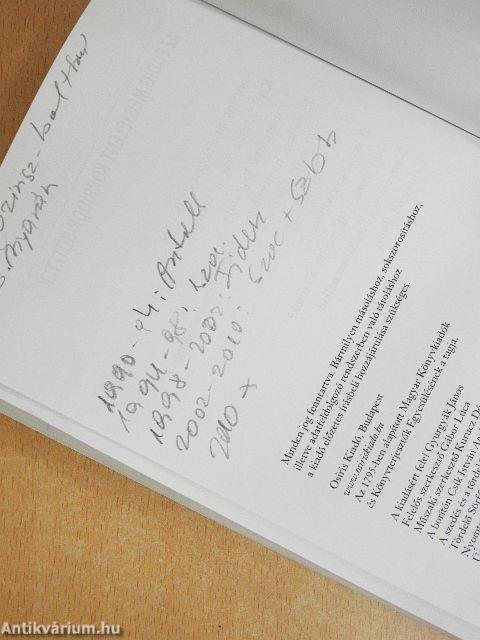 1990-94: Antall
1994-98: Szoc.
1998-2002: Fidesz
2002-2010: Szoc + Szbb
2010 →
Minden jog fenntartva. Bármilyen másoláshoz, sokszorosításhoz,
illetve adatfeldolgozó rendszerben való tároláshoz
a kiadó előzetes írásbeli hozzájárulása szükséges.
Osiris Kiadó, Budapest
www.osiriskiado.hu
Az 1795-ben alapított Magyar Könyvkiadók
és Könyvterjesztők Egyesülésének a tagja.
A kiadásért felel Gyurgyák János
Felelős szerkesztő Gábor Luca
Műszaki szerkesztő Kurucz
A borítón Csík István
A szedés és a
Tördelő
Antikvárium.hu